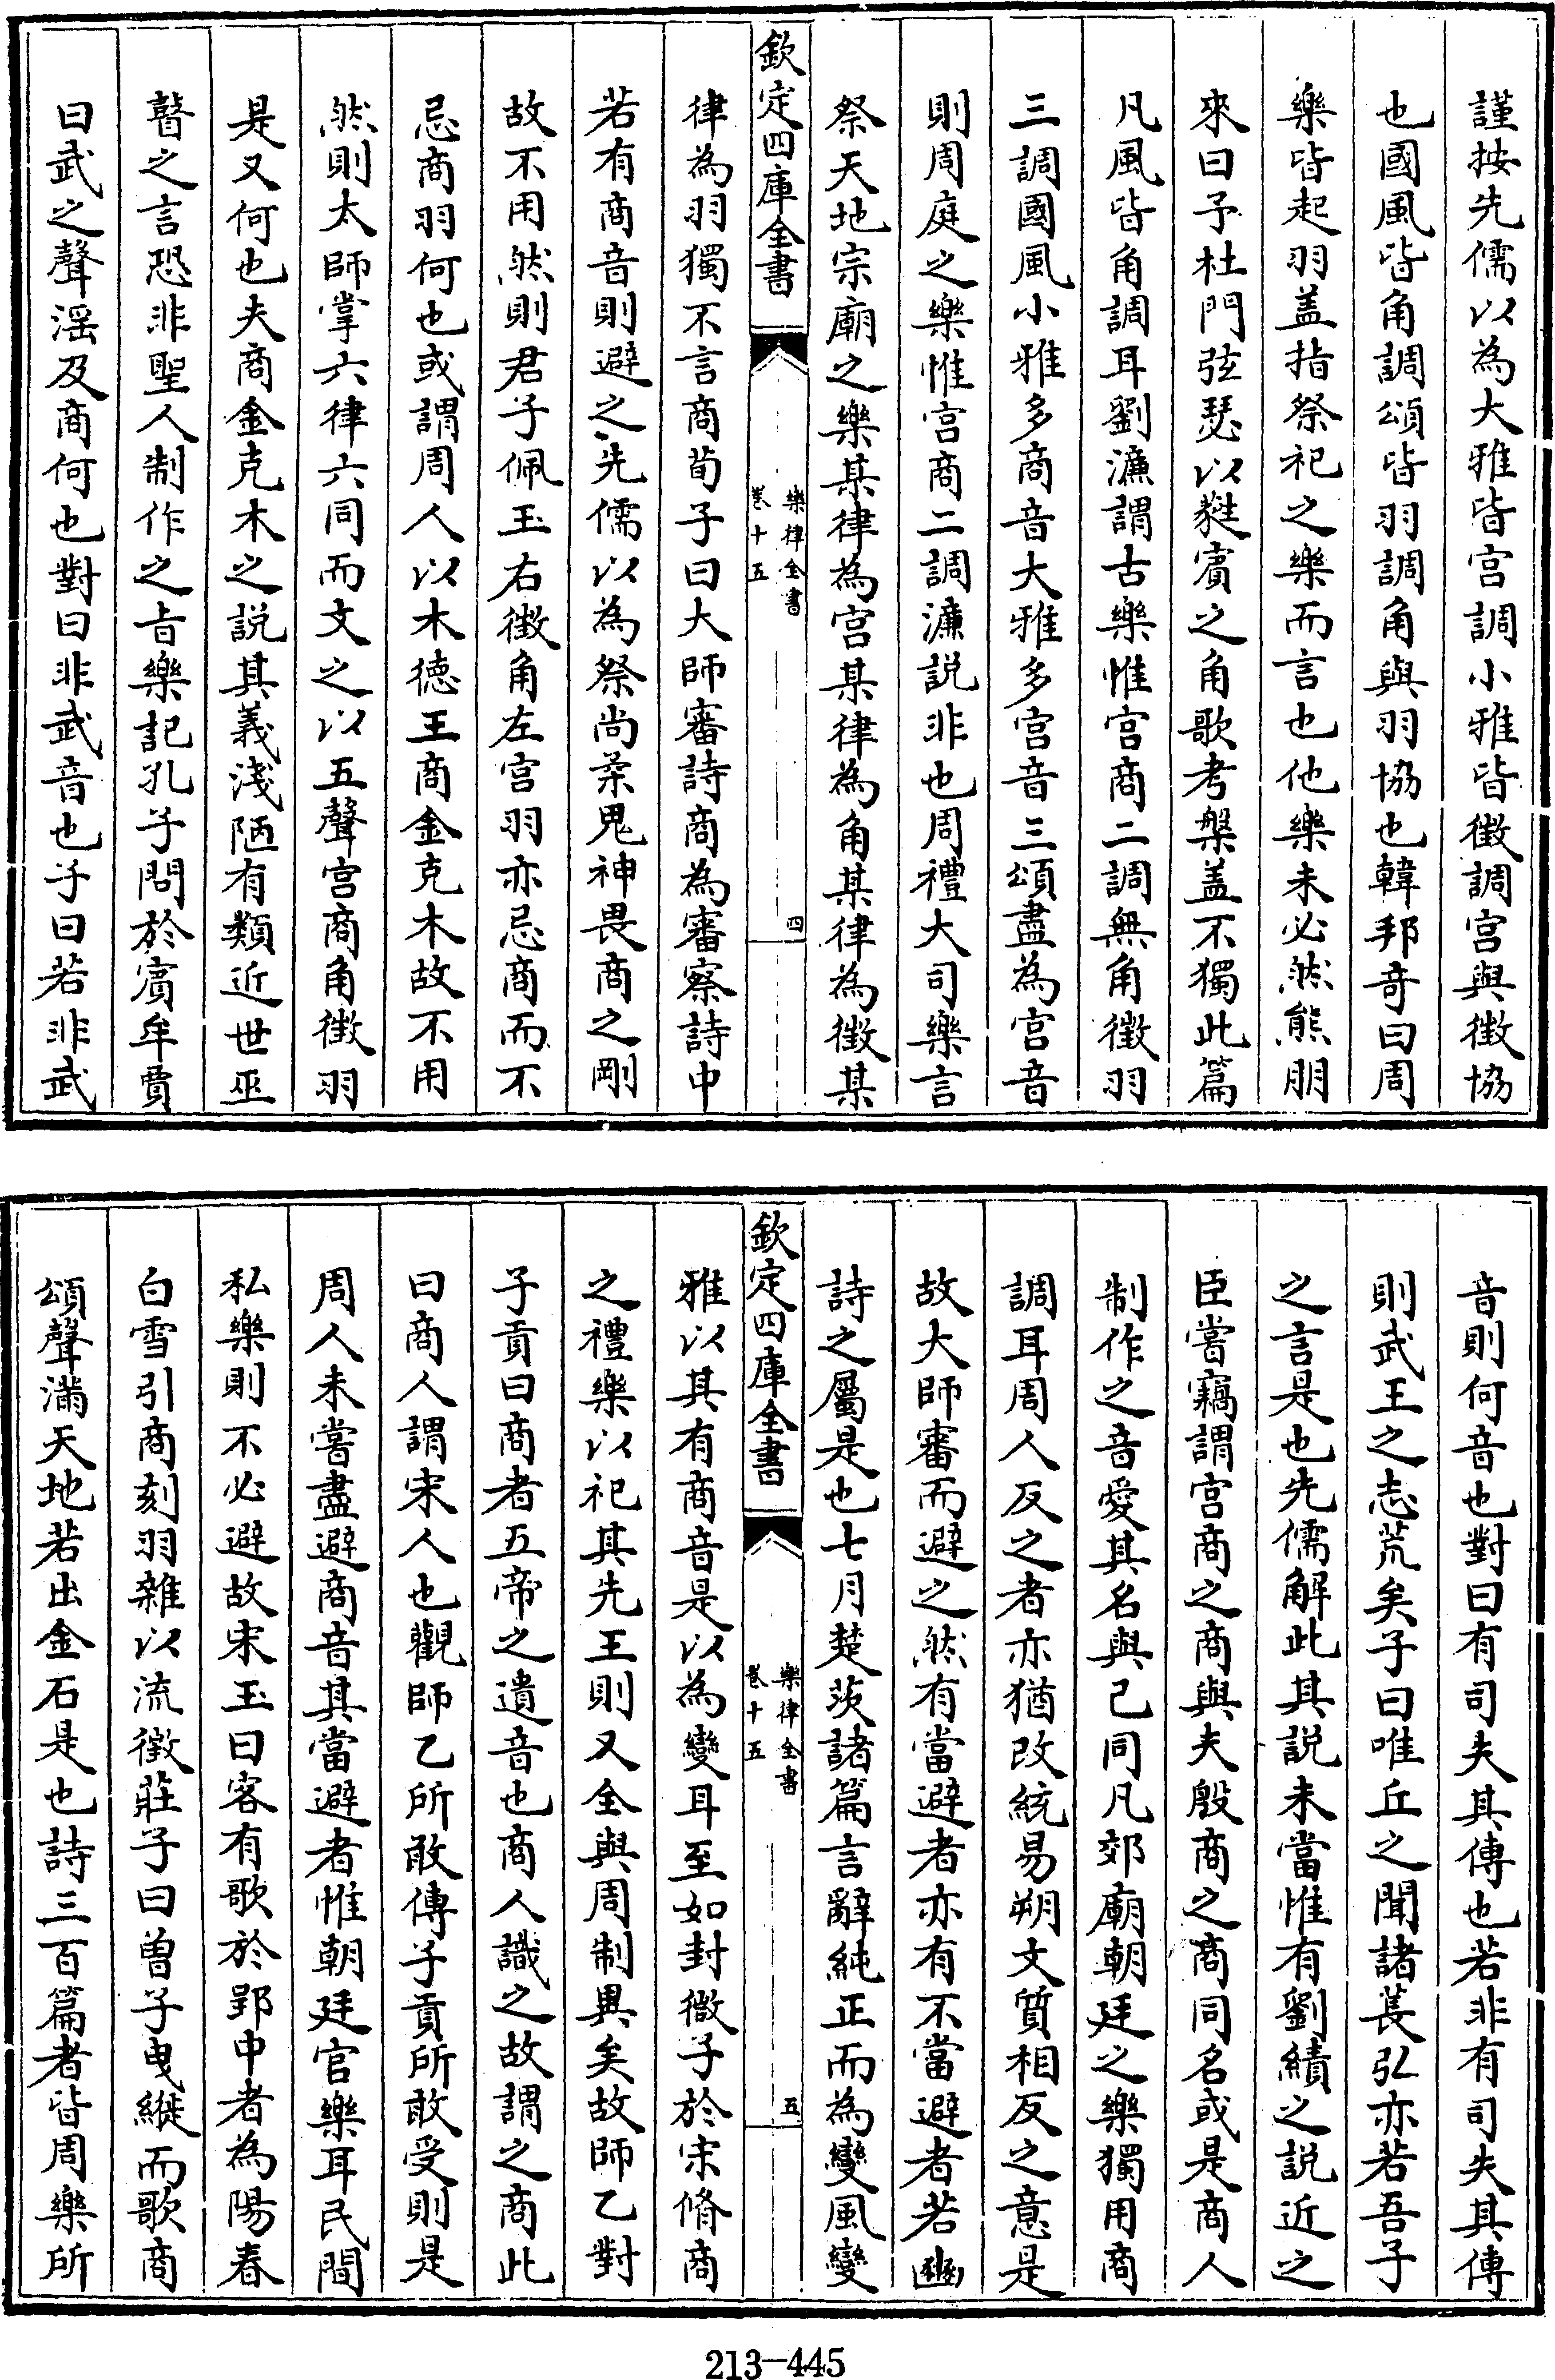 謹按先儒以為大雅皆宫調小雅皆徵調宫與徵協
也國風皆角調頌皆羽調角與羽協也韓邦奇曰周
樂皆起羽盖指祭祀之樂而言也他樂未必然熊朋
來曰予杜門弦瑟以蕤賓之角歌考槃盖不獨此篇
凡風皆角調耳劉濂謂古樂惟宫商二調無角徵羽
三調國風小雅多商音大雅多宫音三頌盡為宫音
則周庭之樂惟宫商二調濂説非也周禮大司樂言
祭天地宗廟之樂某律為宫某律為角某律為徵某
欽定四庫全書
樂律全書
卷十五
四
律為羽獨不言商荀子曰大師審詩商為審察詩中
若有商音則避之先儒以為祭尚柔鬼神畏商之剛
故不用然則君子佩玉右徵角左宫羽亦忌商而不
忌商羽何也或謂周人以木德王商金克木故不用
然則太師掌六律六同而文之以五聲宫商角徵羽
是又何也夫商金克木之説其義淺陋有類近世巫
瞽之言恐非聖人制作之㫖樂記孔子問於賓牟賈
曰武之聲淫及商何也對曰非武音也子曰若非武
音則何音也對曰有司失其傳也若非有司失其傳
則武王之志荒矣子曰唯丘之聞諸萇弘亦若吾子
之言是也先儒解此其説未當惟有劉績之説近之
臣嘗竊謂宫商之商與夫殷商之商同名或是商人
制作之音愛其名與己同凡郊廟朝廷之樂獨用商
調耳周人反之者亦猶改統易朔文質相反之意是
故大師審而避之然有當避者亦有不當避者若豳
詩之屬是也七月楚茨諸篇言辭純正而為變風變
欽定四庫全書
樂律全書
卷十五
五
雅以其有商音是以為變耳至如封微子於宋脩商
之禮樂以祀其先王則又全與周制異矣故師乙對
子貢曰商者五帝之遺音也商人識之故謂之商此
曰商人謂宋人也觀師乙所敢傳子貢所敢受則是
周人未嘗盡避商音其當避者惟朝廷官樂耳民間
私樂則不必避故宋玉曰客有歌於郢中者為陽春
白雪引商刻羽雜以流徵莊子曰曾子曳縰而歌商
頌聲滿天地若出金石是也詩三百篇者皆周樂所
213-445